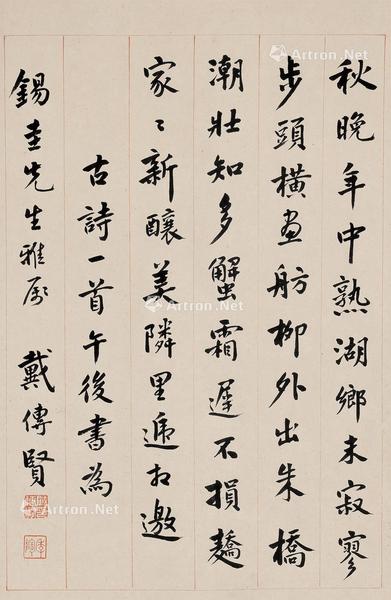 秋晚年中熟湖鄉未寂寥
步頭橫畫舫柳外出朱橋
潮壯知多蟹霜遲不損
家々新釀美隣里遞相邀
古詩一首午後書為
錫圭先生雅属 戴傳賢
季陶
Artron.Net